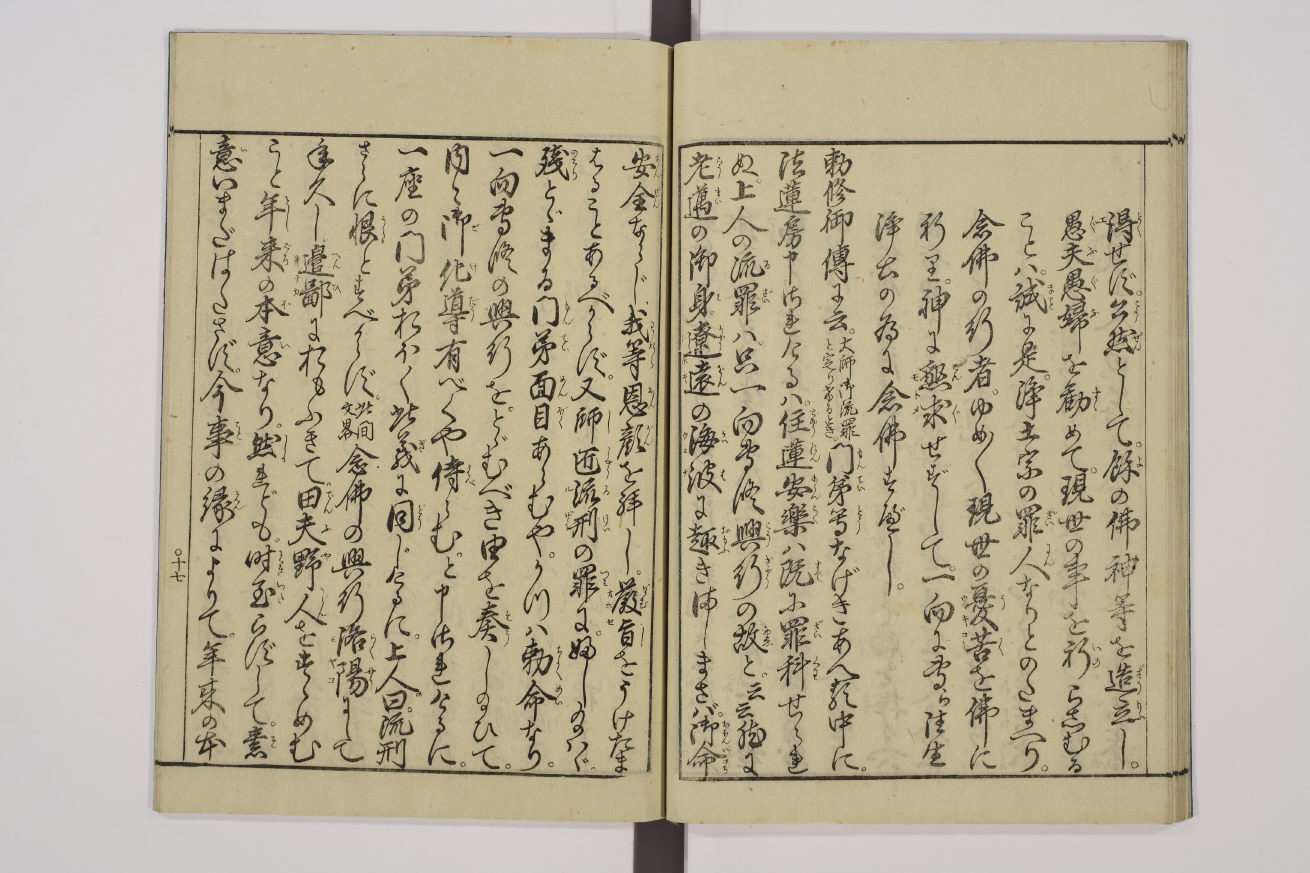 得せず公然として。餘の佛神等を造立し。
愚夫愚婦を勸めて。現世の事を祈らしむる
ことハ。誠に是。浄土宗の罪人なりとのたまへり。
念佛の行者。ゆめ〱現世の憂苦を佛に
祈り。神に懇求せずして。一向に専ら往生
浄土の為に念佛すべし。
勅修御傳に云。大師御流罪と定り給ふるとき。門弟等なげきあへる中に。
法蓮房申されけるハ住蓮安樂ハ既に罪科せられ
ぬ。上人の流罪ハ只一向専修興行の故と。云云然に
老邁の御身遼遠の海波に趣きましまさバ。御命
安全ならじ。我等恩顔を拝し。嚴旨をうけたま
はることあるべからず。又師匠流刑の罪に。婦しのハヾ
殘とゞまる門弟面目あらむや。かつハ勅命なり。
一向専修の興行をとゞむべき由を奏しのひて。
内々御化導有べくや侍らむ。と申されけるに。
一座の門弟おほく此義に同じけるに。上人曰。流刑
さらに恨とすべからず。此間文畧念佛の興行洛陽にして
年久し邊鄙におもふきて。田夫野人をすゝめむ
こと年来の本意なり。然れども。時至らずして。素
意いまだはたさず。今事の縁によりて。年来の本
○十七